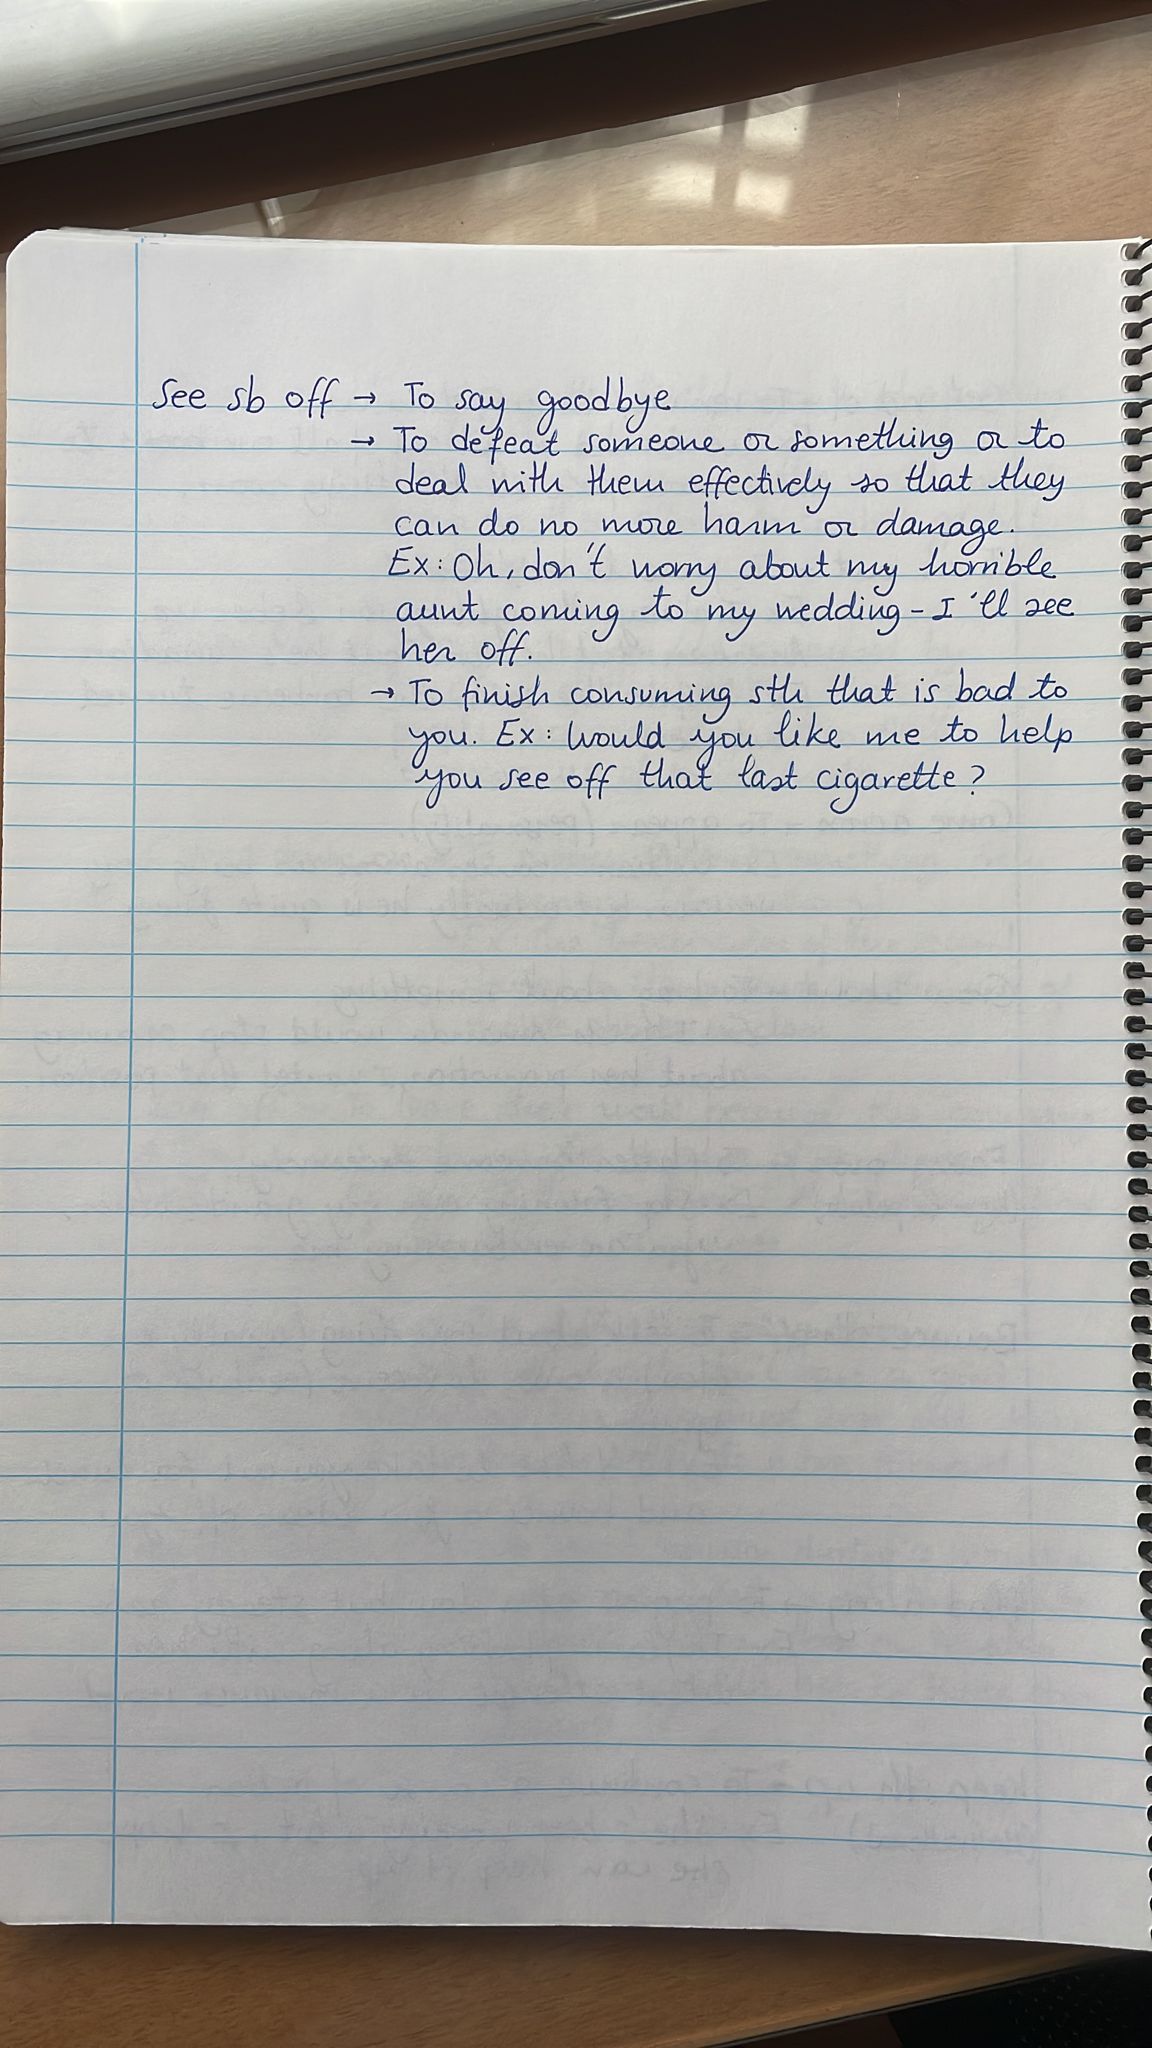 See sb off → To say goodbye
→ To defeat someone or something or to
deal with them effectively so that they
can do no more harm or damage.
Ex: Oh, don't worry about my horrible
aunt coming to my wedding - I'll see
her off.
→ To finish consuming sth that is bad to
you. Ex: Would you like me to help
you see off that last cigarette?